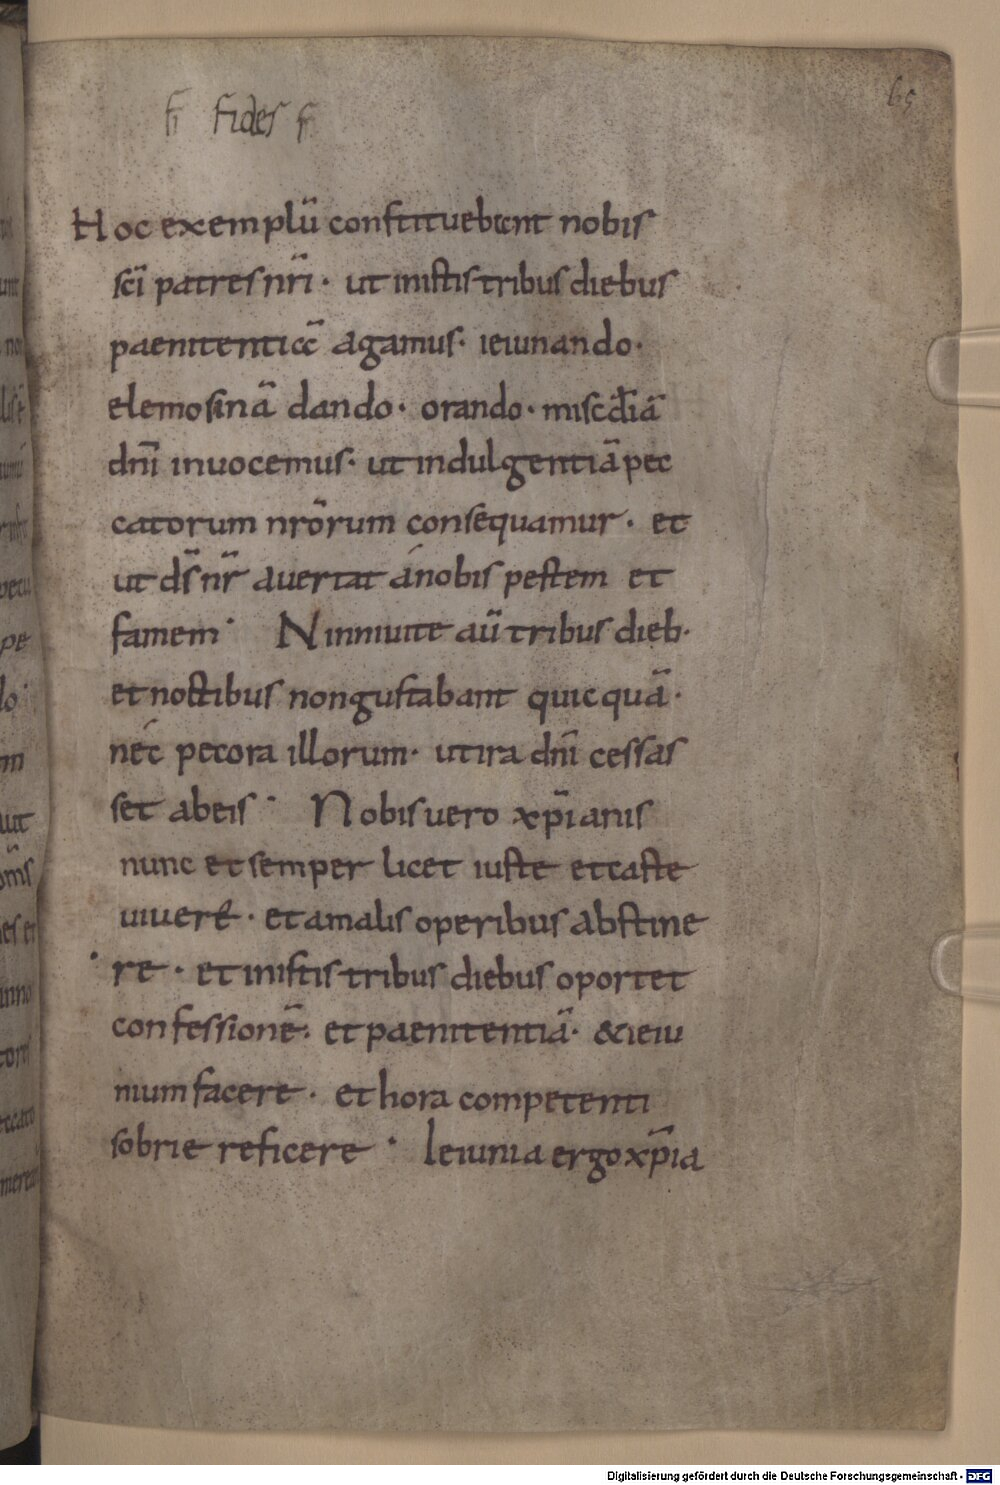 65
fi fides fi
Hoc exemplū constituebant nobis
sc̄i patres nr̄i · ut in istis tribus diebus
paenitentiā agamus · ieiunando ·
elemosinā dando · orando · miscd̄iā
dn̄i inuocemus · ut indulgentiā pec
catorum nr̄orum consequamur · et
ut ds̄ nr̄ auertat á nobis pestem et
famem · Niniuite aū tribus dieb·
et noctibus non gustabant quicquā ·
néc pecora illorum · ut ira dn̄i cessas
set ab eis · Nobis uero xp̄ianis
nunc et semper licet iuste et caste
uiuere · et a malis operibus abstine
re · et in istis tribus diebus oportet
confessionē · et paenitentiā · & ieiu
nium facere · et hora competenti
sobrie reficere · Ieiunia ergo xp̄ia
Digitalisierung gefördert durch die Deutsche Forschungsgemeinschaft - DFG